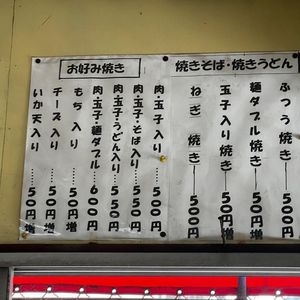 お好み焼き
肉・玉子入り……500円
肉・玉子・そば入り……550円
肉・玉子・うどん入り……550円
肉・玉子・麺ダブル……600円
もち入り……50円増
チーズ入り……50円増
いか天入り……50円増
焼きそば・焼きうどん
ふつう焼き――500円
麺ダブル焼き――50円増
玉子入り焼き――50円増
ねぎ焼き――500円